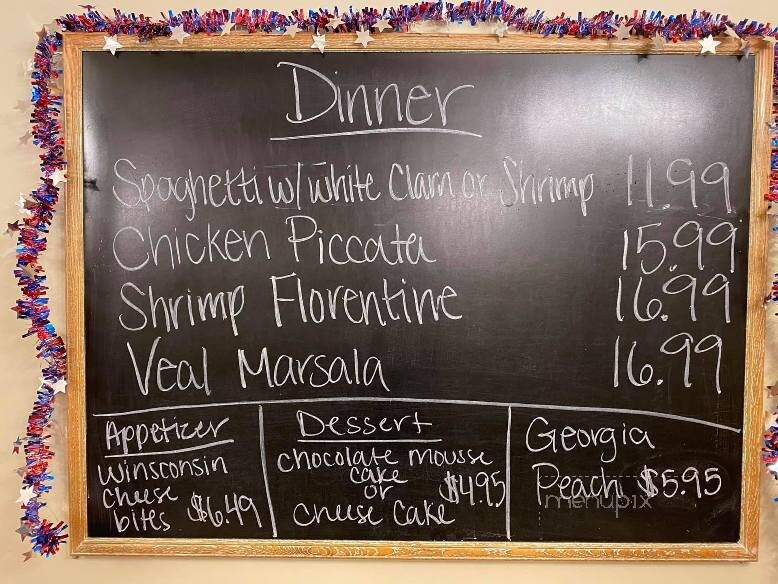 Dinner
Spaghetti w/ white Clam or Shrimp 11.99
Chicken Piccata 15.99
Shrimp Florentine 16.99
Veal Marsala 16.99
Appetizer
Winsconsin
cheese
bites $6.49
Dessert
chocolate mousse
cake
or $4.95
Cheese Cake
Georgia
Peach $5.95
menupix